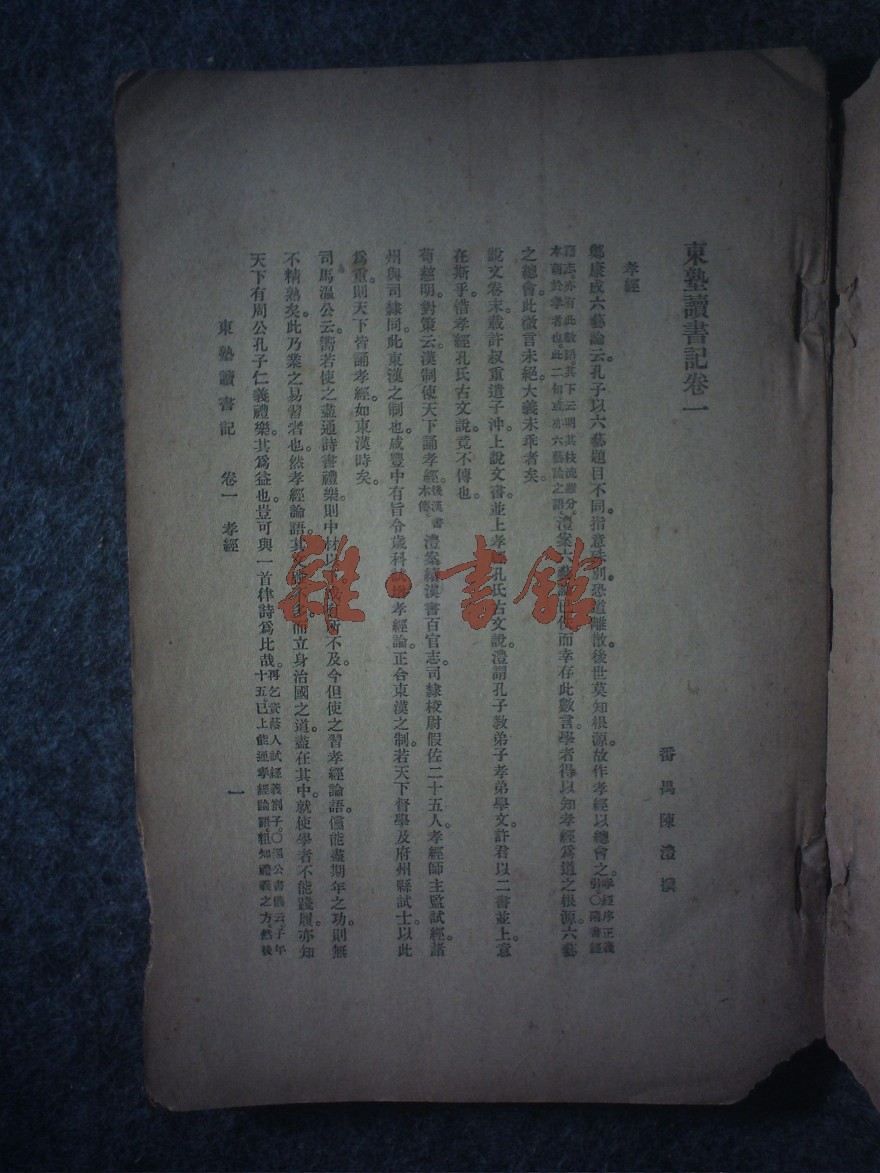 東塾讀書記卷一
番禺陳澧撰
孝經
鄭康成六藝論云。孔子以六藝題目不同。指意殊別。恐道離散。後世莫知根源。故作孝經以總會之。孝經序正義引。〇隋書經
籍志。亦有此數語。其下云。明其枝流雖分。本萌於孝者也。此二句或亦六藝論之語。澧案六藝論已佚。而幸存此數言。學者得以知孝經為道之根源。六藝
之總會。此微言未絕。大義未乖者矣。
說文卷末。載許叔重遣子沖上說文書。並上孝經孔氏古文說。澧謂孔子教弟子孝弟學文。許君以二書並上。意
在斯乎。惜孝經孔氏古文說。竟不傳也。
荀慈明對策云。漢制使天下誦孝經。後漢書本傳。澧案續漢書百官志。司隸校尉假佐二十五人。孝經師主監試經。諸
州與司隸同。此東漢之制也。咸豐中有旨令歲科試增孝經論。正合東漢之制。若天下督學及府州縣試士以此
為重。則天下皆誦孝經。如東漢時矣。
司馬溫公云。嚮若使之盡通詩書禮樂。則中材以所不及。今但使之習孝經論語。儻能盡期年之功。則無
不精熟矣。此乃業之易習者也。然孝經論語。其文而立身治國之道。盡在其中。就使學者不能踐履。亦知
天下有周公孔子仁義禮樂。其為益也。豈可與一首律詩為比哉。再乞資蔭人試經義劄子。〇溫公書儀云。子年十五已上。能通孝經論語。粗知禮義之方。然後
東塾讀書記 卷一 孝經 一
雜·書館